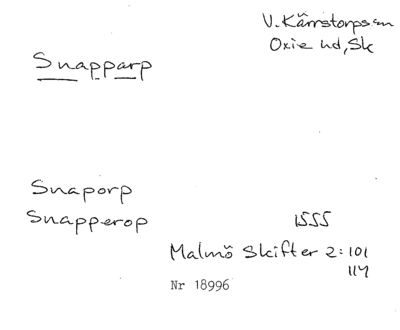 V. Kärrstorps sn
Oxie hd, Sk
Snapparp
Snaporp
Snapperop 1555
Malmö Skifter 2:101
114
Nr 18996